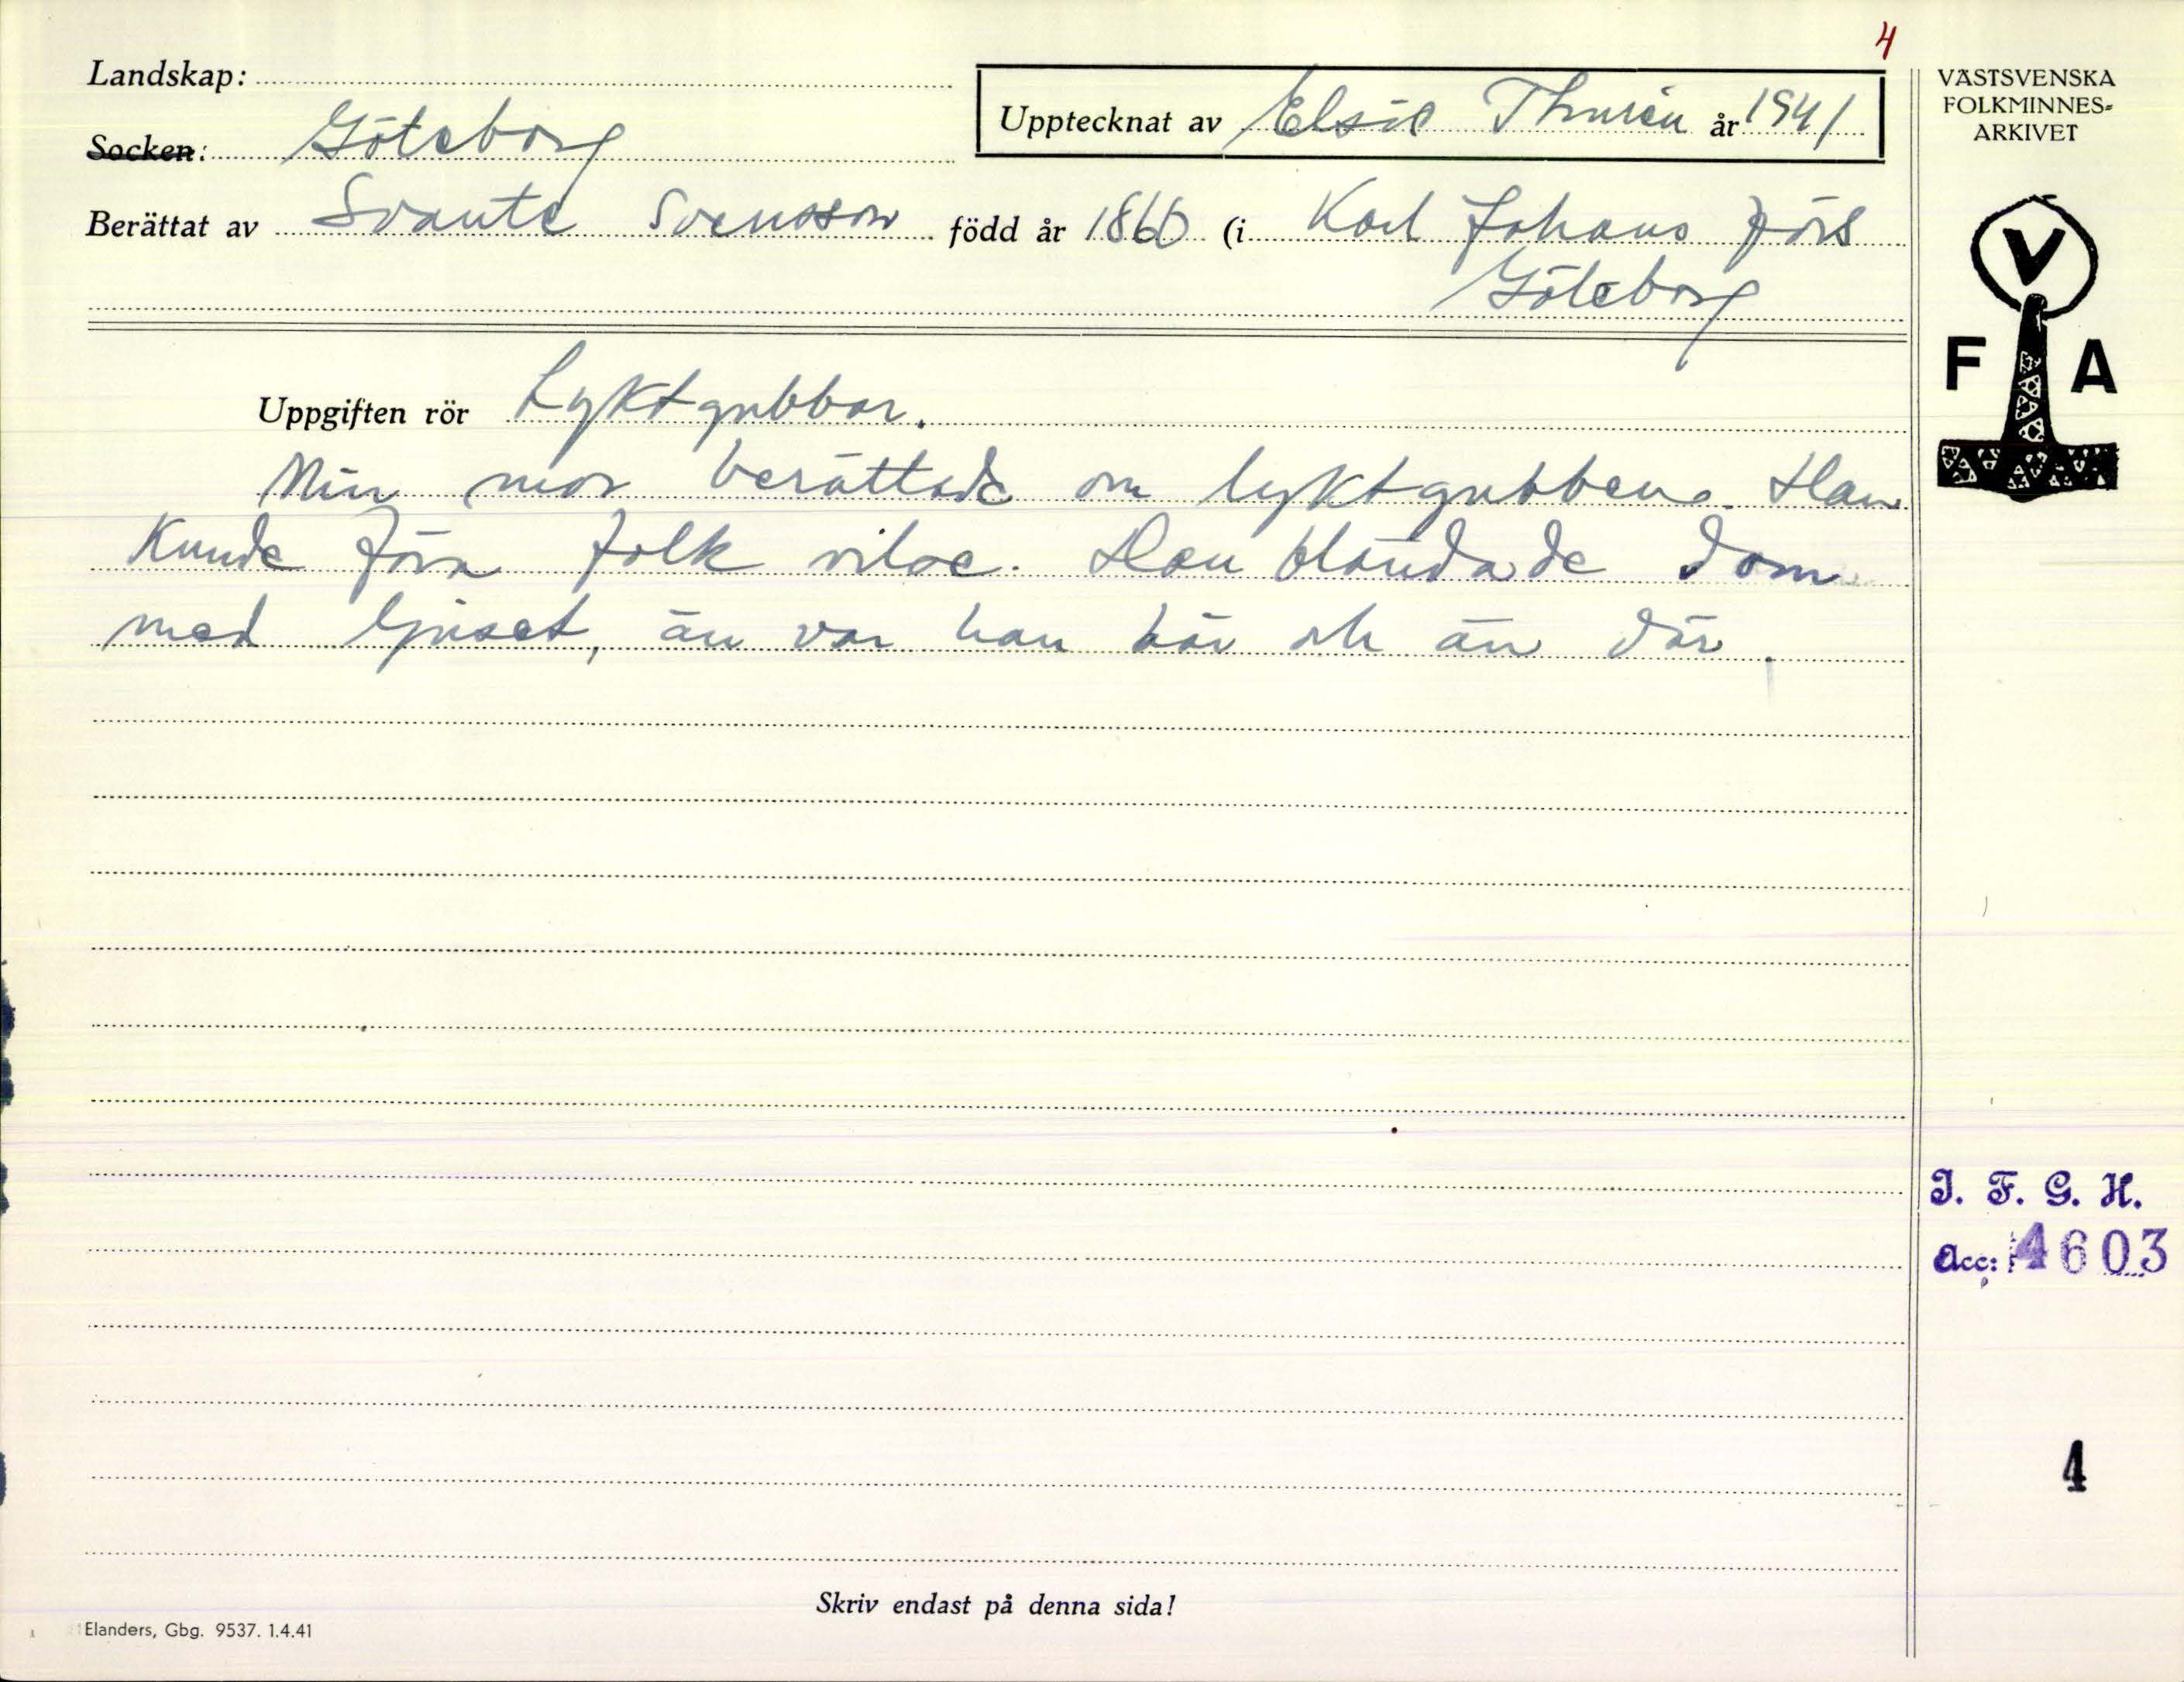 4
Landskap:
Socken: Göteborg
Upptecknat av Elsie Thurén år 1941
Berättat av Svante Svensson född år 1860 (i Karl Johans förs
Göteborg
Uppgiften rör Lyktgubbar.
Min mor berättade om lyktgubbens. Han
kunde föra folk vilse. Han bländade dom
med ljuset, än var han här och än där.
VÄSTSVENSKA
FOLKMINNES-
ARKIVET
V
F A
I. F. G. H.
Acc: 4603
4
Skriv endast på denna sida!
Elanders, Gbg. 9537. 1.4.41